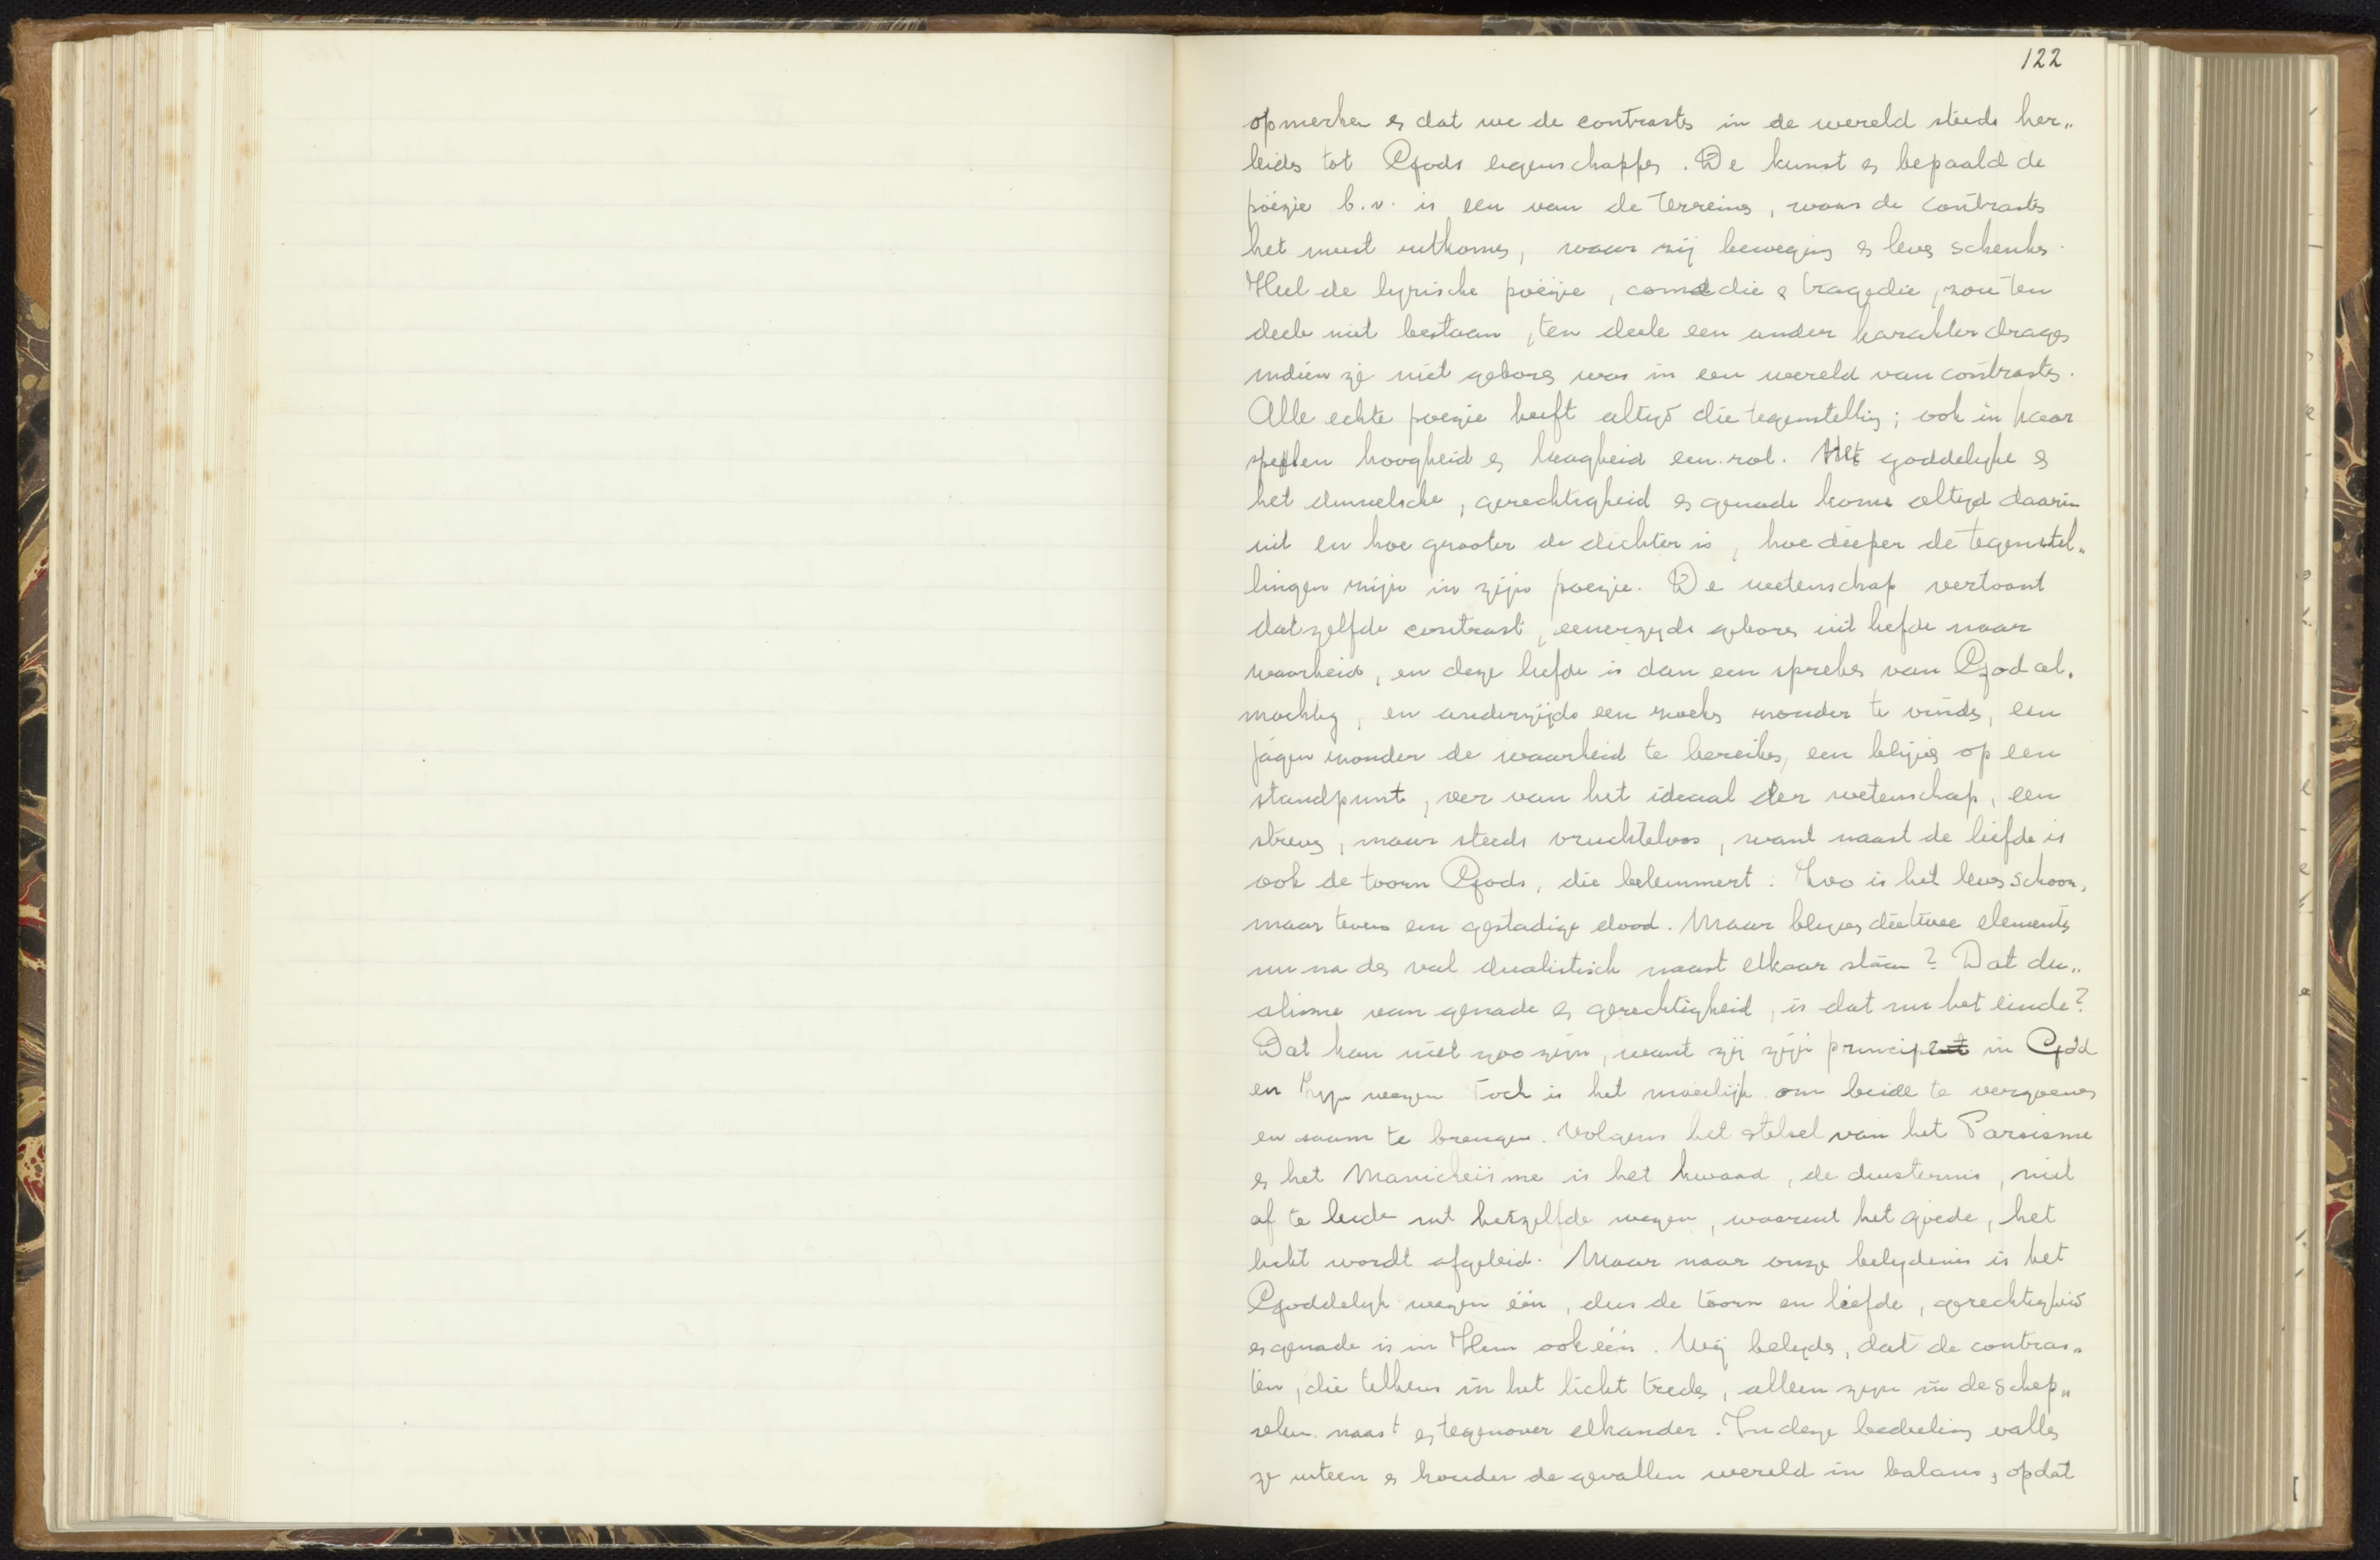 122
opmerken en dat we de contrasten in de wereld steeds her„
leiden tot Gods eigenschappen. De kunst en bepaald de
poëzie b.v. is een van de terreinen, waar de contrasten
het meest uitkomen, waar zij beweging en leven schenken.
Heel de lyrische poëzie, comedie en tragedie, zou ten
deele niet bestaan, ten deele een ander karakter dragen
indien zij niet geboren was in een wereld van contrasten.
Alle echte poezie heeft altijd die tegenstelling; ook in haar
spelen hoogheid en laagheid een rol. Het goddelijke en
het duivelsche, gerechtigheid en genade komen altijd daarin
uit en hoe grooter de dichter is, hoe dieper de tegenstel„
lingen zijn in zijn poezie. De wetenschap vertoont
datzelfde contrast, eenerzijds geboren uit liefde naar
waarheid, en deze liefde is dan een spreken van God al„
machtig, en anderzijds een zoeken zonder te vinden, een
jagen zonder de waarheid te bereiken, een blijven op een
standpunt, ver van het ideaal der wetenschap, een
streven, maar steeds vruchteloos, want naast de liefde is
ook de toorn Gods, die belemmert. Zoo is het leven schoon,
maar tevens een gestadige dood. Maar blijven die twee elementen
nu na den val dualistisch naast elkaar staan? Dat du„
alisme van genade en gerechtigheid, is dat nu het einde?
Dat kan niet zoo zijn, want zij zijn principes in God
en Zijn wezen Toch is het moeilijk om beide te verzoenen
en saam te brengen. Volgens het stelsel van het Parsisme
en het Manicheïsme is het kwaad, de duisternis, niet
af te leiden uit hetzelfde wezen, waaruit het goede, het
licht wordt afgeleid. Maar naar onze belijdenis is het
Goddelijk wezen één, dus de toorn en liefde, gerechtigheid
en genade is in Hem ook één. Wij belijden, dat de contras„
ten, die telkens in het licht treden, alleen zijn in de schep„
selen naast en tegenover elkander. In deze bedeeling vallen
ze uiteen en houden de gevallen wereld in balans, opdat